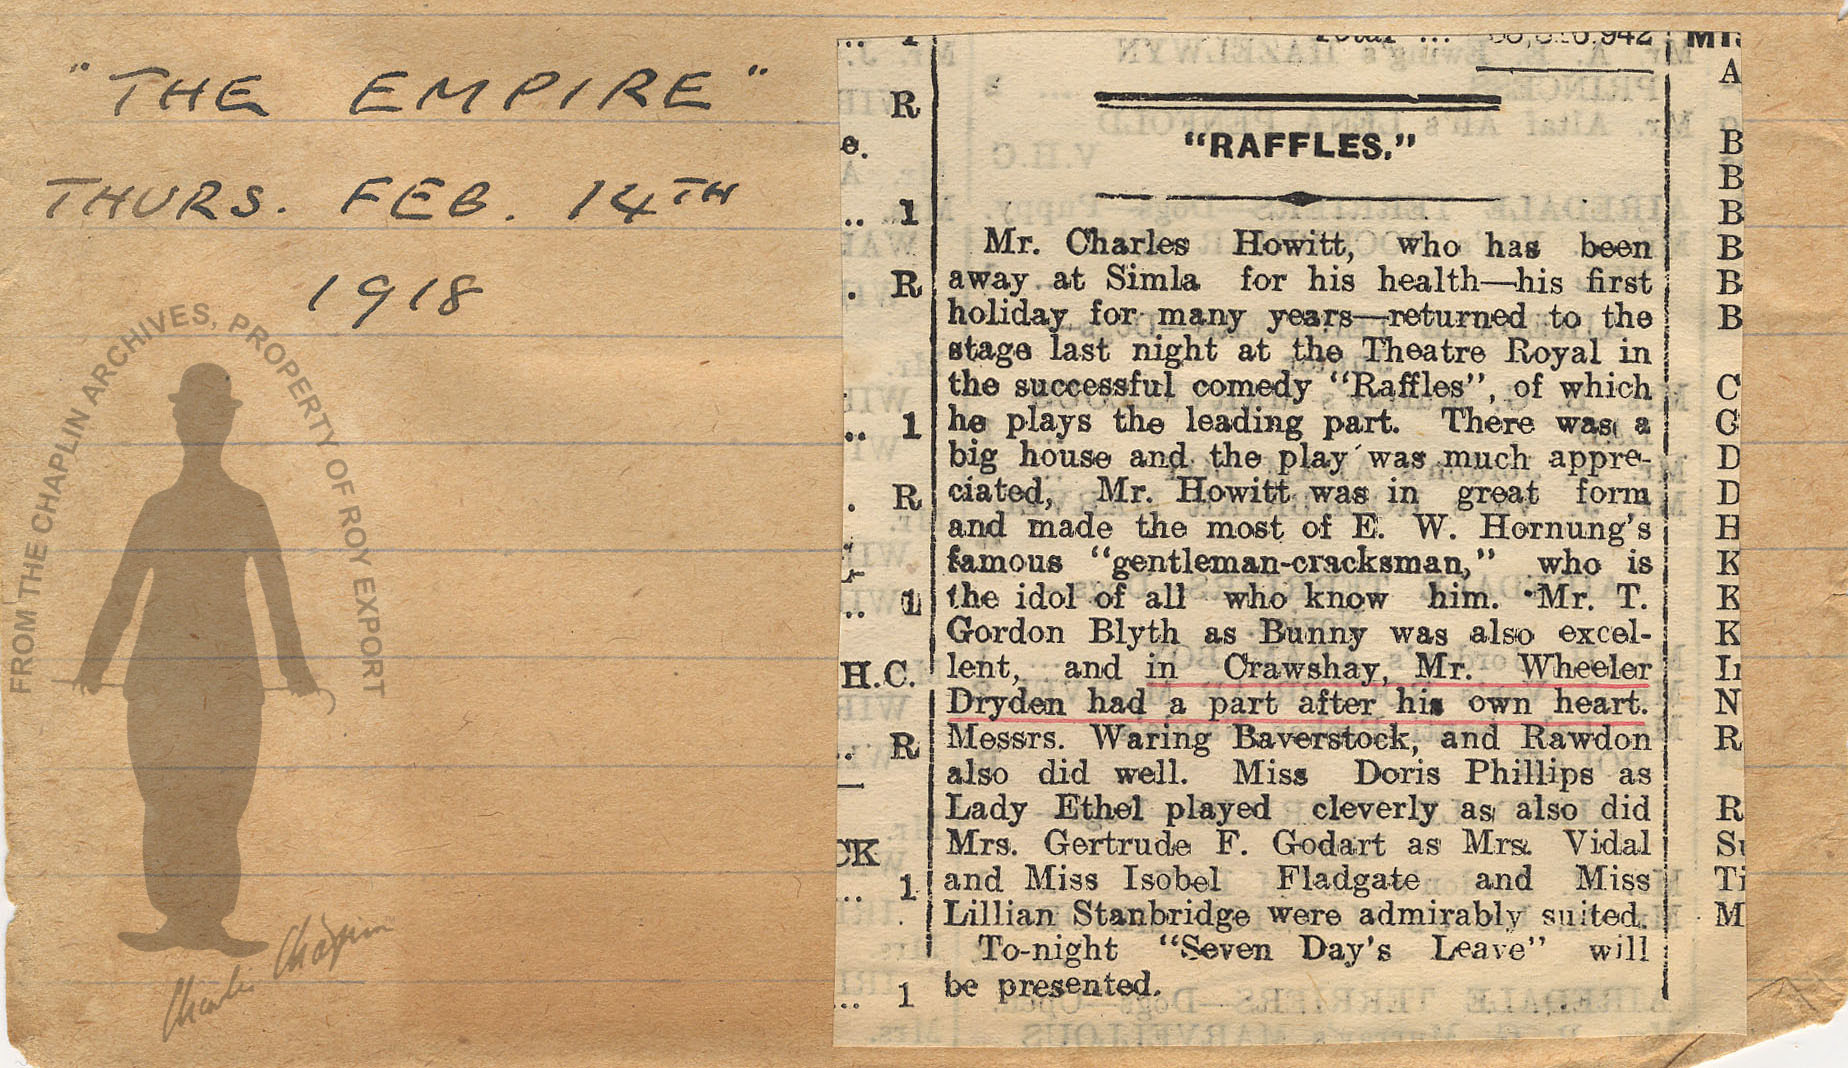 "THE EMPIRE"
THURS. FEB. 14TH
1918
FROM THE CHAPLIN ARCHIVES, PROPERTY OF ROY EXPORT
Charlie Chaplin
"RAFFLES."
Mr. Charles Howitt, who has been
away at Simla for his health—his first
holiday for many years—returned to the
stage last night at the Theatre Royal in
the successful comedy "Raffles", of which
he plays the leading part. There was a
big house and the play was much appre-
ciated, Mr. Howitt was in great form
and made the most of E. W. Hornung's
famous "gentleman-cracksman," who is
the idol of all who know him. Mr. T.
Gordon Blyth as Bunny was also excel-
lent, and in Crawshay, Mr. Wheeler
Dryden had a part after his own heart.
Messrs. Waring Baverstock, and Rawdon
also did well. Miss Doris Phillips as
Lady Ethel played cleverly as also did
Mrs. Gertrude F. Godart as Mrs. Vidal
and Miss Isobel Fladgate and Miss
Lillian Stanbridge were admirably suited.
To-night "Seven Day's Leave" will
be presented.